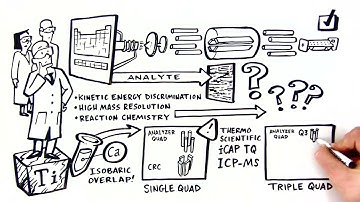 ANALYTE
• KINETIC ENERGY DISCRIMINATION
• HIGH MASS RESOLUTION
• REACTION CHEMISTRY
? ? ? ?
Ti
Ca
ISOBARIC
OVERLAP!
ANALYZER
QUAD
CRC
SINGLE QUAD
THERMO
SCIENTIFIC
iCAP TQ
ICP-MS
ANALYZER
QUAD
Q3
TRIPLE QUAD